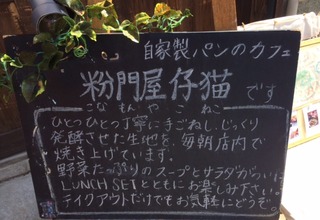 自家製パンのカフェ
粉門屋仔猫 です
こなもんや こねこ
ひとつひとつ丁寧に手ごねし、じっくり
発酵させた生地を、毎朝店内で
焼き上げています。
野菜たっぷりのスープとサラダがついた
LUNCH SETとともにお楽しみ下さい。
テイクアウトだけでもお気軽にどうぞ。